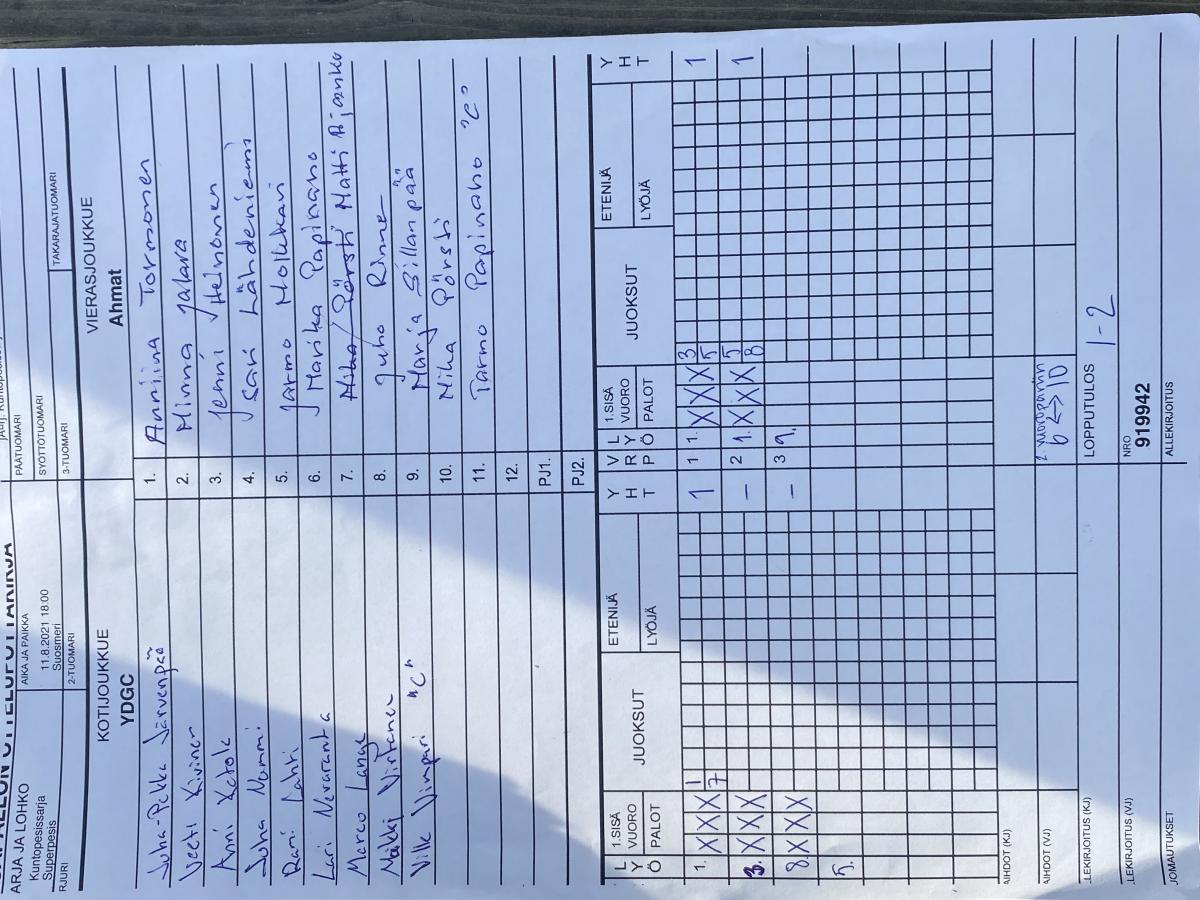 PESÄPALLON OTTELUPÖYTÄKIRJA
SARJA JA LOHKO
Kuntopesissarja
Superpesis
AIKA JA PAIKKA
11.8.2021 18:00
Suosmeri
PÄÄTUOMARI
SYÖTTÖTUOMARI
2-TUOMARI
3-TUOMARI
TAKARAJATUOMARI
KOTIJOUKKUE
YDGC
VIERASJOUKKUE
Ahmat
Juha-Pekka Järvenpää 1. Anniina Tormonen
Veeti Kivinen 2. Minna Jalava
Anni Ketola 3. Jenni Heinonen
Juha Nummi 4. Sari Lähdeniemi
Rami Lahti 5. Jarmo Mollikari
Lari Nevaranta 6. Marika Papinaho
Marco Lange 7. Mika Pörsti Matti Rajanko
Virtanen 8. Juho Rinne
Ville Vimpari "C" 9. Marja Sillanpää
10. Mika Pörsti
11. Tarmo Papinaho "C"
12.
PJ1.
PJ2.
L Y Ö 1.SISÄ VUORO PALOT JUOKSUT ETENIJÄ LYÖJÄ Y H T V R P L Y Ö 1.SISÄ VUORO PALOT JUOKSUT ETENIJÄ LYÖJÄ Y H T
1. X X X 1 7 1 1 1. X X X 3 5 1
3. X X X – 2 1. X X X 5 8 1
8. X X X – 3 9.
5.
VAIHDOT (KJ)
VAIHDOT (VJ) 2. vuoropariin
6 <-> 10
ALLEKIRJOITUS (KJ) LOPPUTULOS 1-2
ALLEKIRJOITUS (VJ) NRO
919942
HUOMAUTUKSET ALLEKIRJOITUS